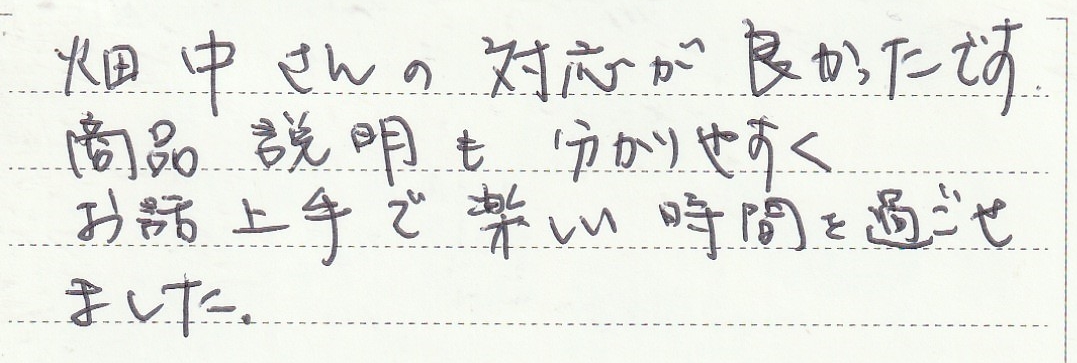 畑中さんの対応が良かったです.
商品説明も分かりやすく
お話上手で楽しい時間を過ごせ
ました.